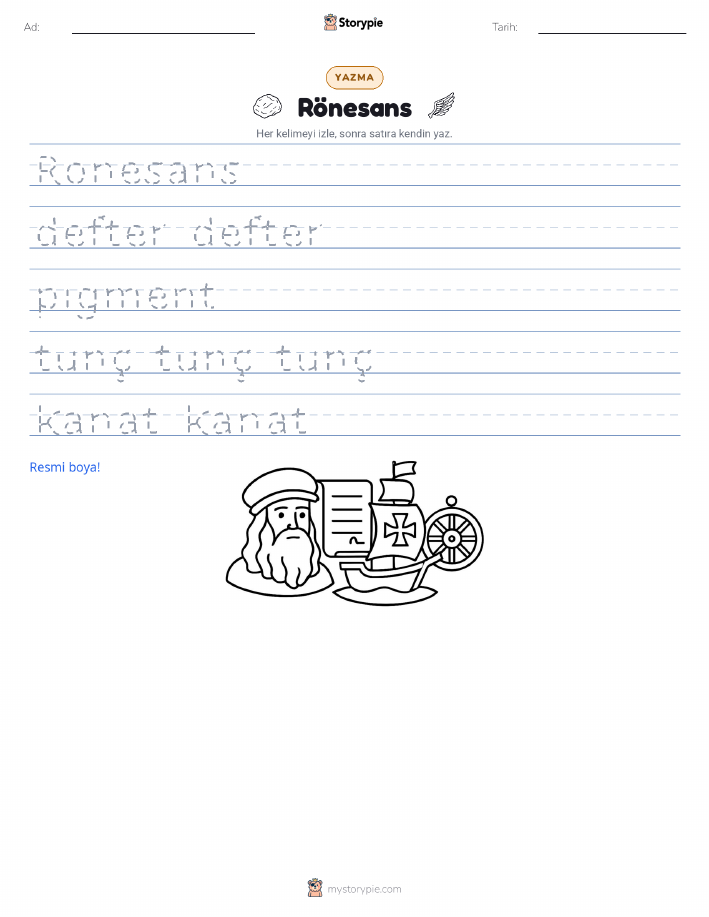 Ad:
Storypie
Tarih:
YAZMA
Rönesans
Her kelimeyi izle, sonra satıra kendin yaz.
Ronesans
defter defter
pıgment
tunç tunç tunç
kanat kanat
Resmi boya!
mystorypie.com